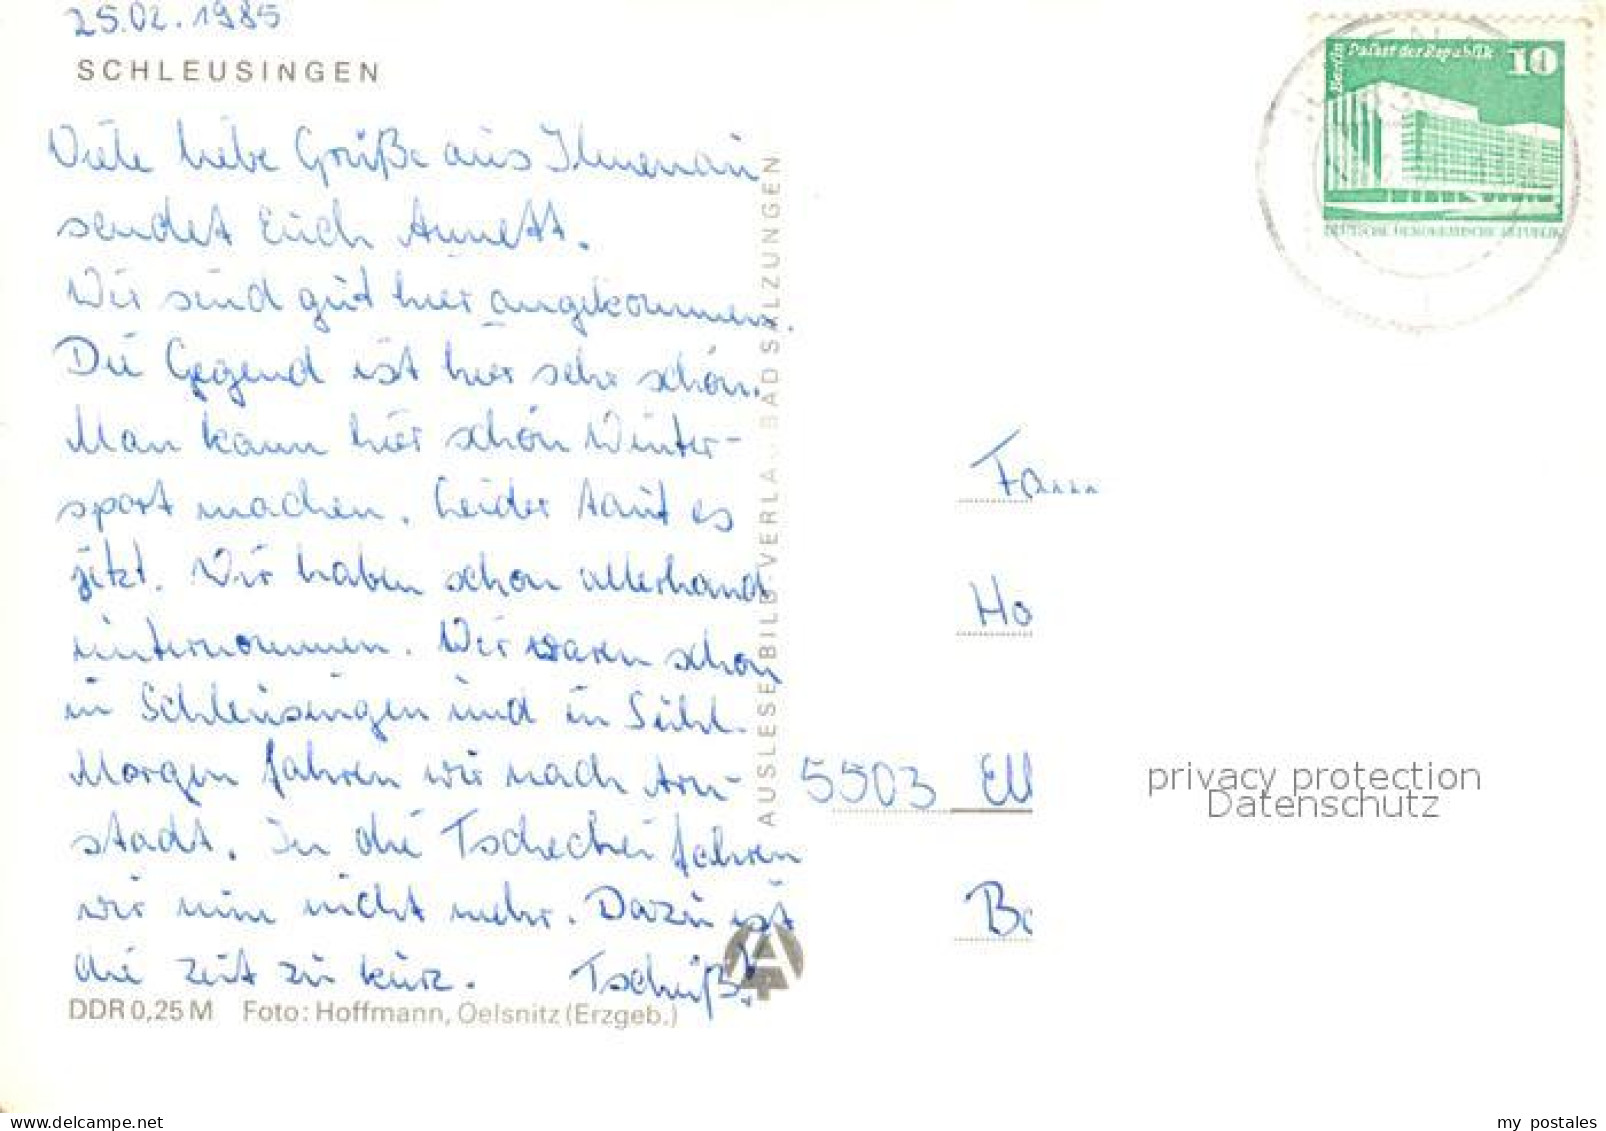 25.02.1985
SCHLEUSINGEN
Viele liebe Grüße aus Ilmenau
sendet Euch Annett.
Wir sind gut hier angekommen.
Die Gegend ist hier sehr schön.
Man kann hier schön Winter-
sport machen. Leider taut es
jetzt. Wir haben schon allerhand
unternommen. Wir waren schon
in Schleusingen und in Suhl.
Morgen fahren wir nach Arn-
stadt. In die Tschechei fahren
wir nun nicht mehr. Dazu ist
die Zeit zu kurz. Tschüß!
DDR 0,25 M Foto: Hoffmann, Oelsnitz (Erzgeb.)
AUSLESE-BILD-VERLA BAD SALZUNGEN
Berlin Palast der Republik 10
DEUTSCHE DEMOKRATISCHE REPUBLIK
Fam
Ho
5503 Ell
privacy protection
Datenschutz
my postales